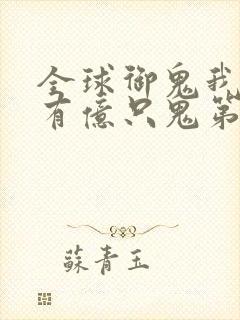 全球御鬼我
有億只鬼第
蘇青玉